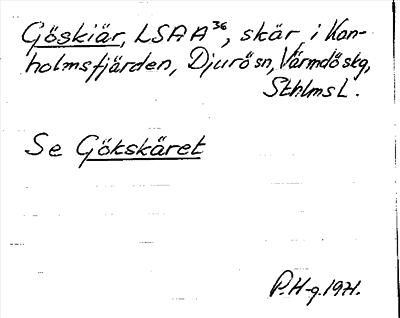 Göskiär, LSAA36, skär i Kan-
holmsfjärden, Djurö sn, Värmdö skg,
Sthlms L.
Se Gökskäret
P.H-g. 1971.